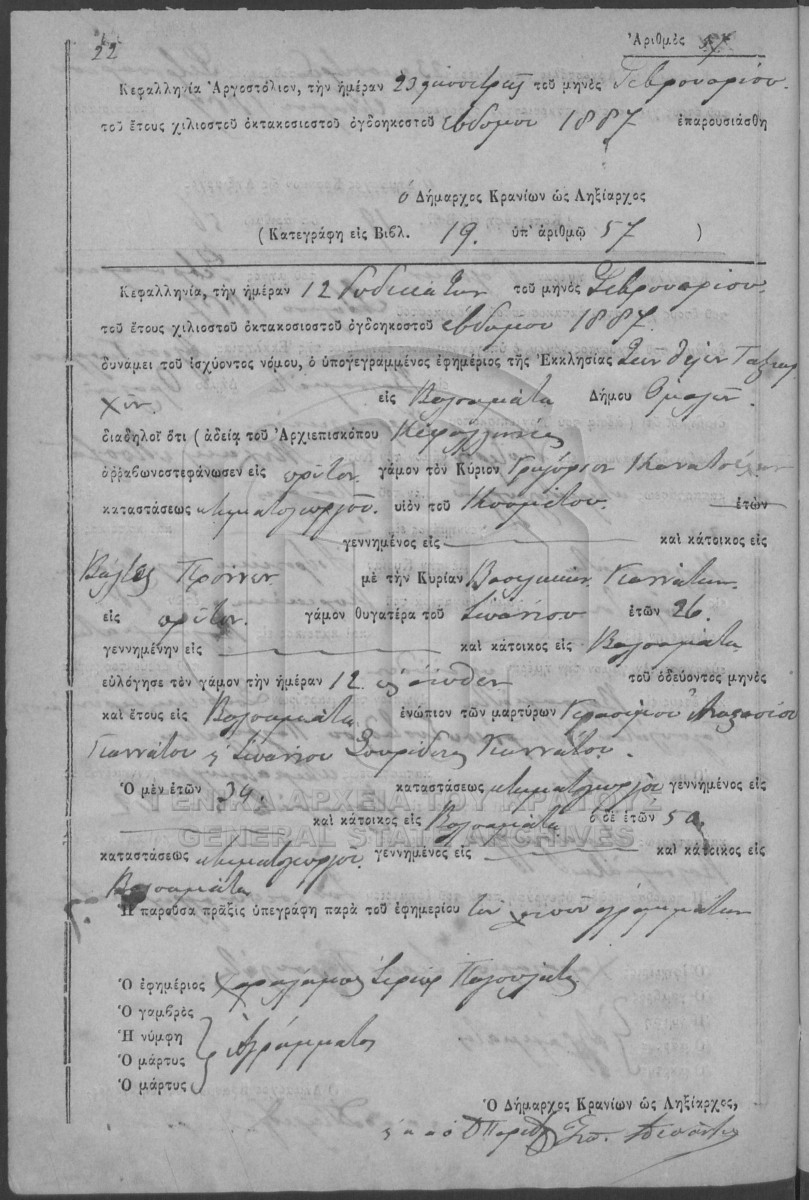 22
Ἀριθμὸς 57
Κεφαλληνία Ἀργοστόλιον, τὴν ἡμέραν 23 εἰκοστὴν τρίτην τοῦ μηνὸς Φεβρουαρίου
τοῦ ἔτους χιλιοστοῦ ὀκτακοσιοστοῦ ὀγδοηκοστοῦ ἑβδόμου 1887 ἐπαρουσιάσθη
ὁ Δήμαρχος Κρανίων ὡς Ληξίαρχος
(Κατεγράφη εἰς Βιβλ. 19. ὑπ' ἀριθμῷ 57 )
Κεφαλληνία, τὴν ἡμέραν 12 δωδεκάτην τοῦ μηνὸς Φεβρουαρίου
τοῦ ἔτους χιλιοστοῦ ὀκτακοσιοστοῦ ὀγδοηκοστοῦ ἑβδόμου 1887.
δυνάμει τοῦ ἰσχύοντος νόμου, ὁ ὑπογεγραμμένος ἐφημέριος τῆς Ἐκκλησίας τῶν Ταξιαρ
χῶν εἰς Βαλσαμάτα Δήμου Ὁμαλῶν.
διαδηλοῖ ὅτι (ἀδείᾳ τοῦ Ἀρχιεπισκόπου Κεφαλληνίας
ἀῤῥαβωνοστεφάνωσεν εἰς πρῶτον γάμον τὸν Κύριον Γρηγόριον
καταστάσεως κτηματογεωργοῦ. υἱὸν τοῦ Κοσμάτου. ἐτῶν
γεννημένος εἰς καὶ κάτοικος εἰς
Πρόννων μὲ τὴν Κυρίαν Βασιλικὴν Γιαννάτου.
εἰς πρῶτον. γάμον θυγατέρα τοῦ Σπυρίου ἐτῶν 26.
γεννημένην εἰς καὶ κάτοικος εἰς Βαλσαμάτα
εὐλόγησε τὸν γάμον τὴν ἡμέραν 12 τοῦ ὁδεύοντος μηνὸς
καὶ ἔτους εἰς Βαλσαμάτα ἐνώπιον τῶν μαρτύρων Γερασίμου Ἀναστασίου
Γιαννάτου Γιαννάτου.
Ὁ μὲν ἐτῶν 34. καταστάσεως κτηματογεωργοῦ γεννημένος εἰς
καὶ κάτοικος εἰς Βαλσαμάτα ὁ δὲ ἐτῶν 50
ΓΕΝΙΚΑ ΑΡΧΕΙΑ ΤΟΥ ΚΡΑΤΟΥΣ
GENERAL STATE ARCHIVES
καταστάσεως κτηματογεωργοῦ γεννημένος εἰς καὶ κάτοικος εἰς
Βαλσαμάτα
Ἡ παροῦσα πρᾶξις ὑπεγράφη παρὰ τοῦ ἐφημερίου τῶν λοιπῶν ἀγραμμάτων
Ὁ ἐφημέριος Χαράλαμπος Ἱερεὺς
Ὁ γαμβρὸς
Ἡ νύμφη
Ὁ μάρτυς Ἀγράμματοι
Ὁ μάρτυς
Ὁ Δήμαρχος Κρανίων ὡς Ληξίαρχος,